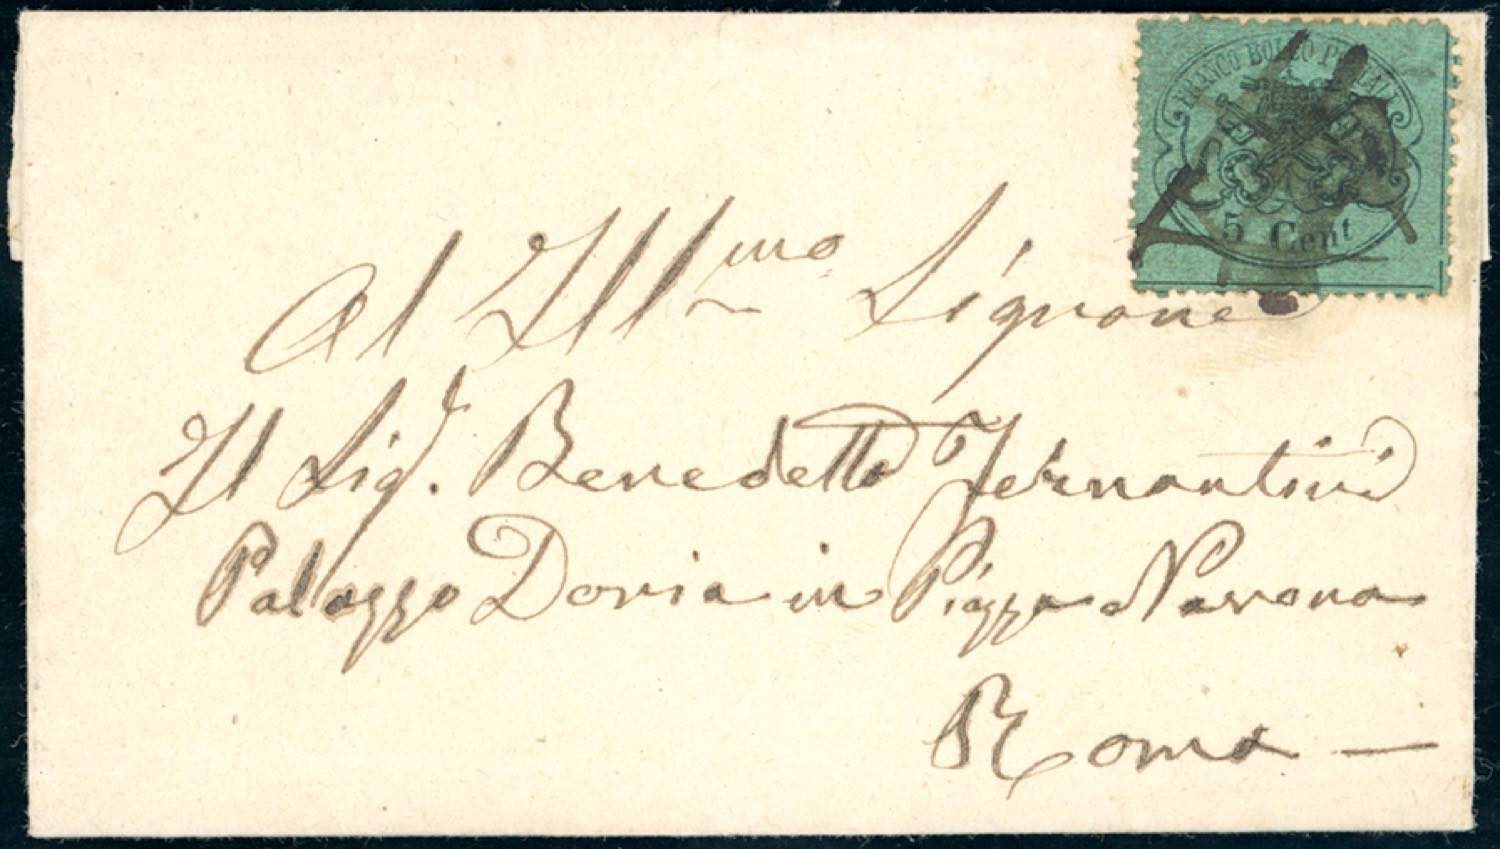 FRANCO BOLLO POSTALE
5 Cent
Al Ill.mo Signore
Il Sig.r Benedetto Fernantini
Palazzo Doria in Piazza Navona
Roma —